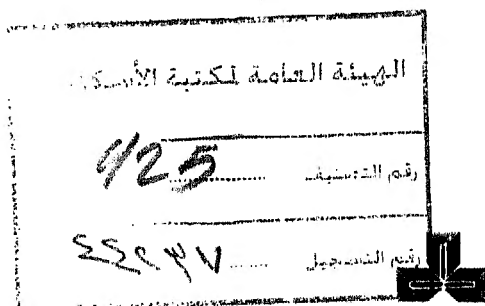 الهيئة العامة لمكتبة الأسكند
رقم التصنيف ........... 925
رقم التسجيل ....... ٤٤٩٣٧